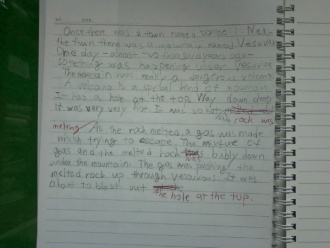 Once there was a town named
the town there was a mountain named Vesuvius
One day - almost - years ago -
something was happening under Vesuvius
The mountain was really a dangerous volcano
A volcano is a special kind of mountain
It has a hole at the top. Way down deep
it was very very hot it was so hot the rock was
melting. As the rock melted, a gas was made
which trying to escape. The mixture of
gas and the melted rock was bubly down
under the mountain. The gas was pushing the
melted rock up through Vesuvius. It was
about to blast out
the hole at the top.